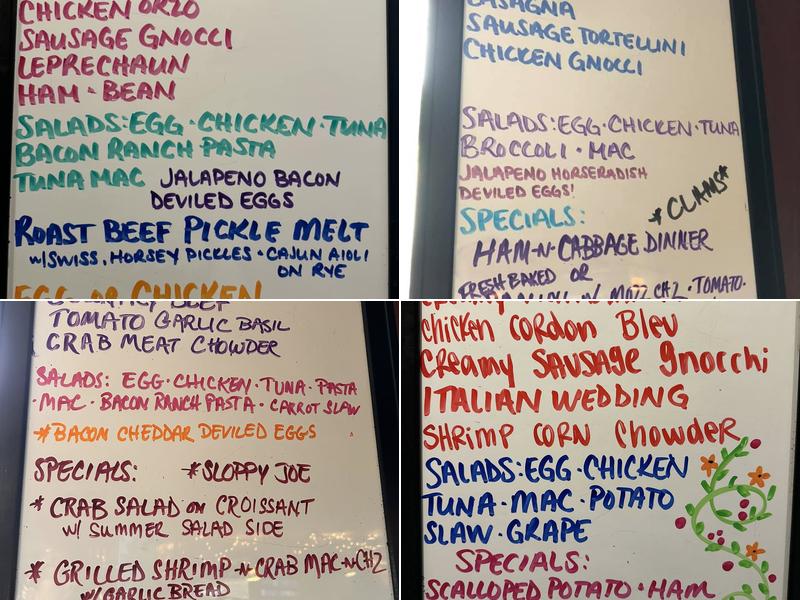 CHICKEN ORZO
SAUSAGE GNOCCI
LEPRECHAUN
HAM · BEAN
SALADS: EGG · CHICKEN · TUNA
BACON RANCH PASTA
TUNA MAC JALAPENO BACON
DEVILED EGGS
ROAST BEEF PICKLE MELT
W/SWISS, HORSEY PICKLES · CAJUN AIOLI
ON RYE
EGG OR CHICKEN
LASAGNA
SAUSAGE TORTELLINI
CHICKEN GNOCCI
SALADS: EGG · CHICKEN · TUNA
BROCCOLI · MAC
JALAPENO HORSERADISH
DEVILED EGGS!
*CLAMS*
SPECIALS:
HAM-N-CABBAGE DINNER
FRESH BAKED OR
W/ MOZZ CHZ · TOMATO ·
BEEF
TOMATO GARLIC BASIL
CRAB MEAT CHOWDER
SALADS: EGG · CHICKEN · TUNA · PASTA
· MAC · BACON RANCH PASTA · CARROT SLAW
*BACON CHEDDAR DEVILED EGGS
SPECIALS: *SLOPPY JOE
* CRAB SALAD ON CROISSANT
W/ SUMMER SALAD SIDE
* GRILLED SHRIMP-N-CRAB MAC-N-CHZ
W/GARLIC BREAD
Chicken Cordon Bleu
Creamy SAUSAGE gnocchi
ITALIAN WEDDING
SHRimp CORN Chowder
SALADS: EGG · CHICKEN
TUNA · MAC · POTATO
SLAW · GRAPE
SPECIALS:
SCALLOPED POTATO · HAM